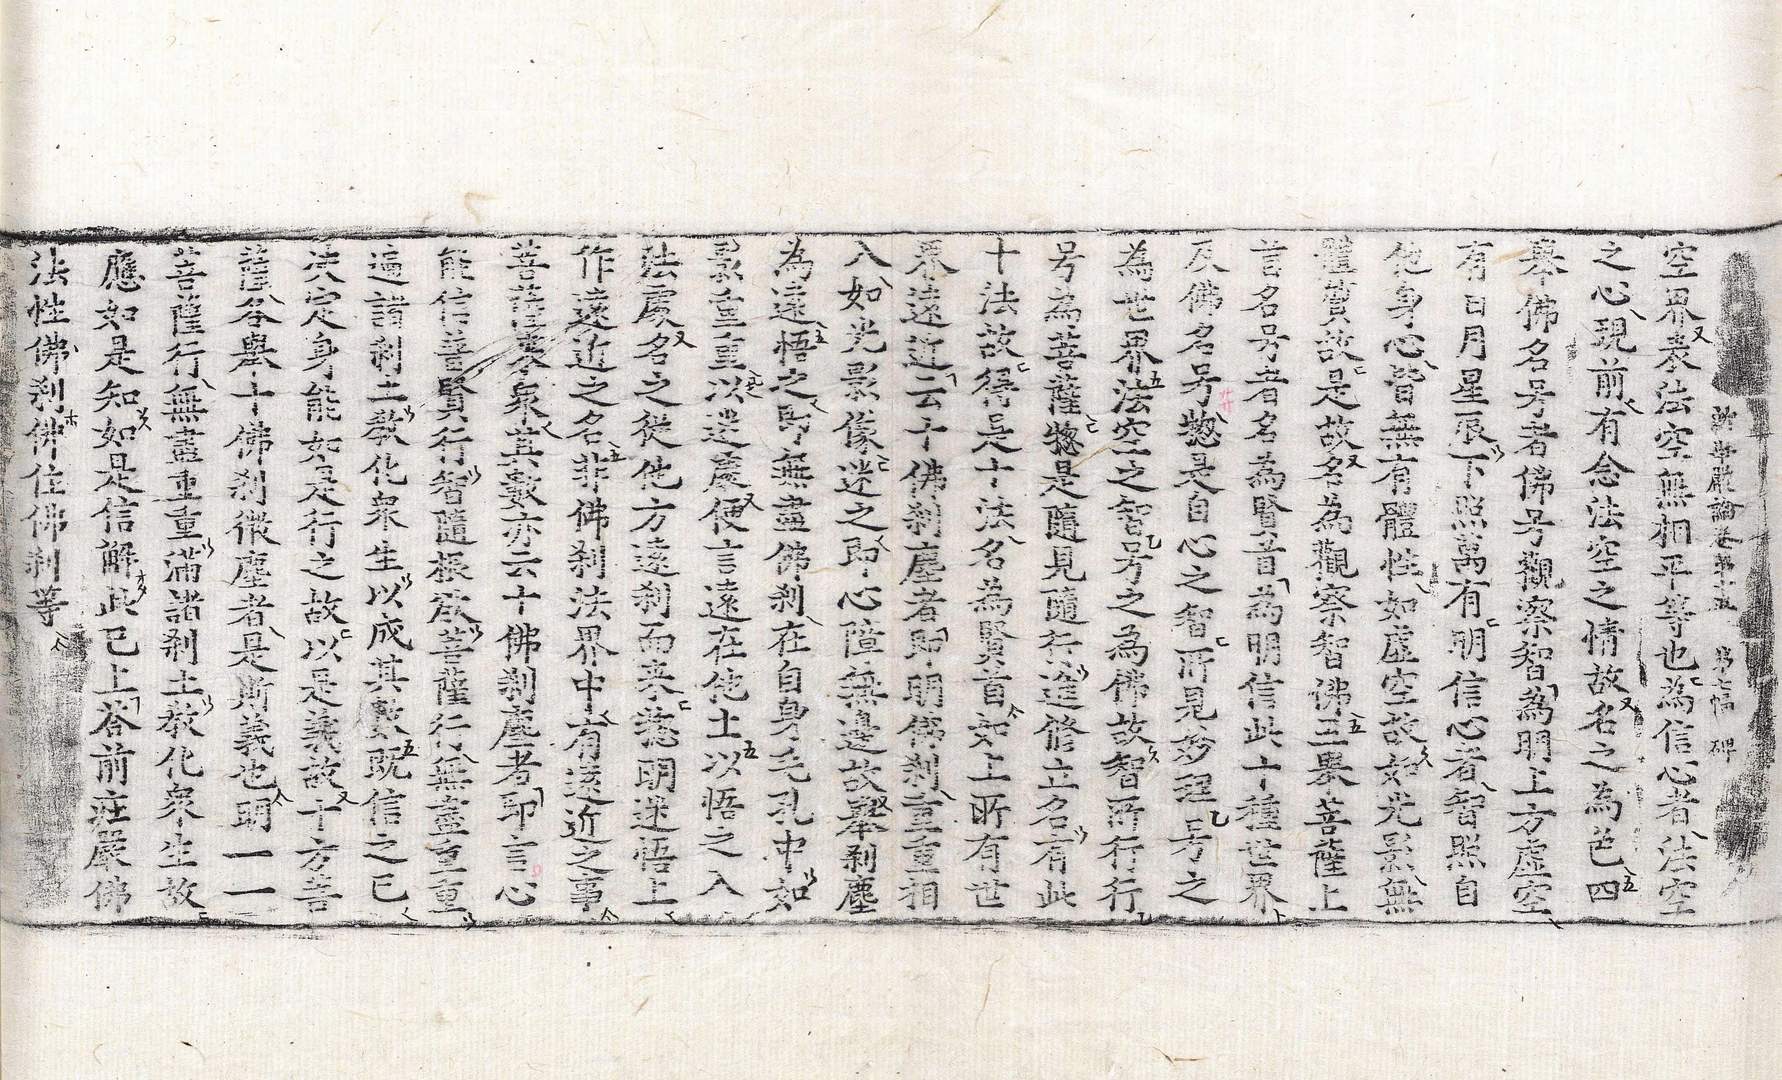 新華嚴論卷第十五　第六幅　碑
空界表法空無相平等也為信心者法空
之心現前有念法空之情故名之為色四
舉佛名号者佛号觀察智為明上方虛空
有日月星辰下照萬有明信心者智照自
他身心皆無有體性如虛空故如光影無
體質故是故名為觀察智佛三舉菩薩上
言名号者名為賢首為明信此十種世界
及佛名号惣是自心之智所見妙理号之
為世界法空之智号之為佛故智所行行
号為菩薩惣是隨見隨行進修立名有此
十法故得是十法名為賢首如上所有世
界遠近云十佛刹塵者即明佛刹重重相
入如光影像迷之即心障無邊故舉刹塵
為遠悟之即無盡佛刹在自身毛孔中如
影重重以迷處便言遠在他土以悟之入
法處名之從他方遠刹而来惣明迷悟上
作遠近之名非佛刹法界中有遠近之事
菩薩来衆其數亦云十佛刹塵者即言心
能信普賢行智隨根欲菩薩行無盡重重
遍諸刹土教化衆生以成其數既信之已
決定身能如是行之故以是義故十方菩
薩各舉十佛刹微塵者是斯義也明一一
菩薩行無盡重重滿諸刹土教化衆生故
應如是知如是信解此已上荅前莊嚴佛
法性佛刹佛住佛刹等